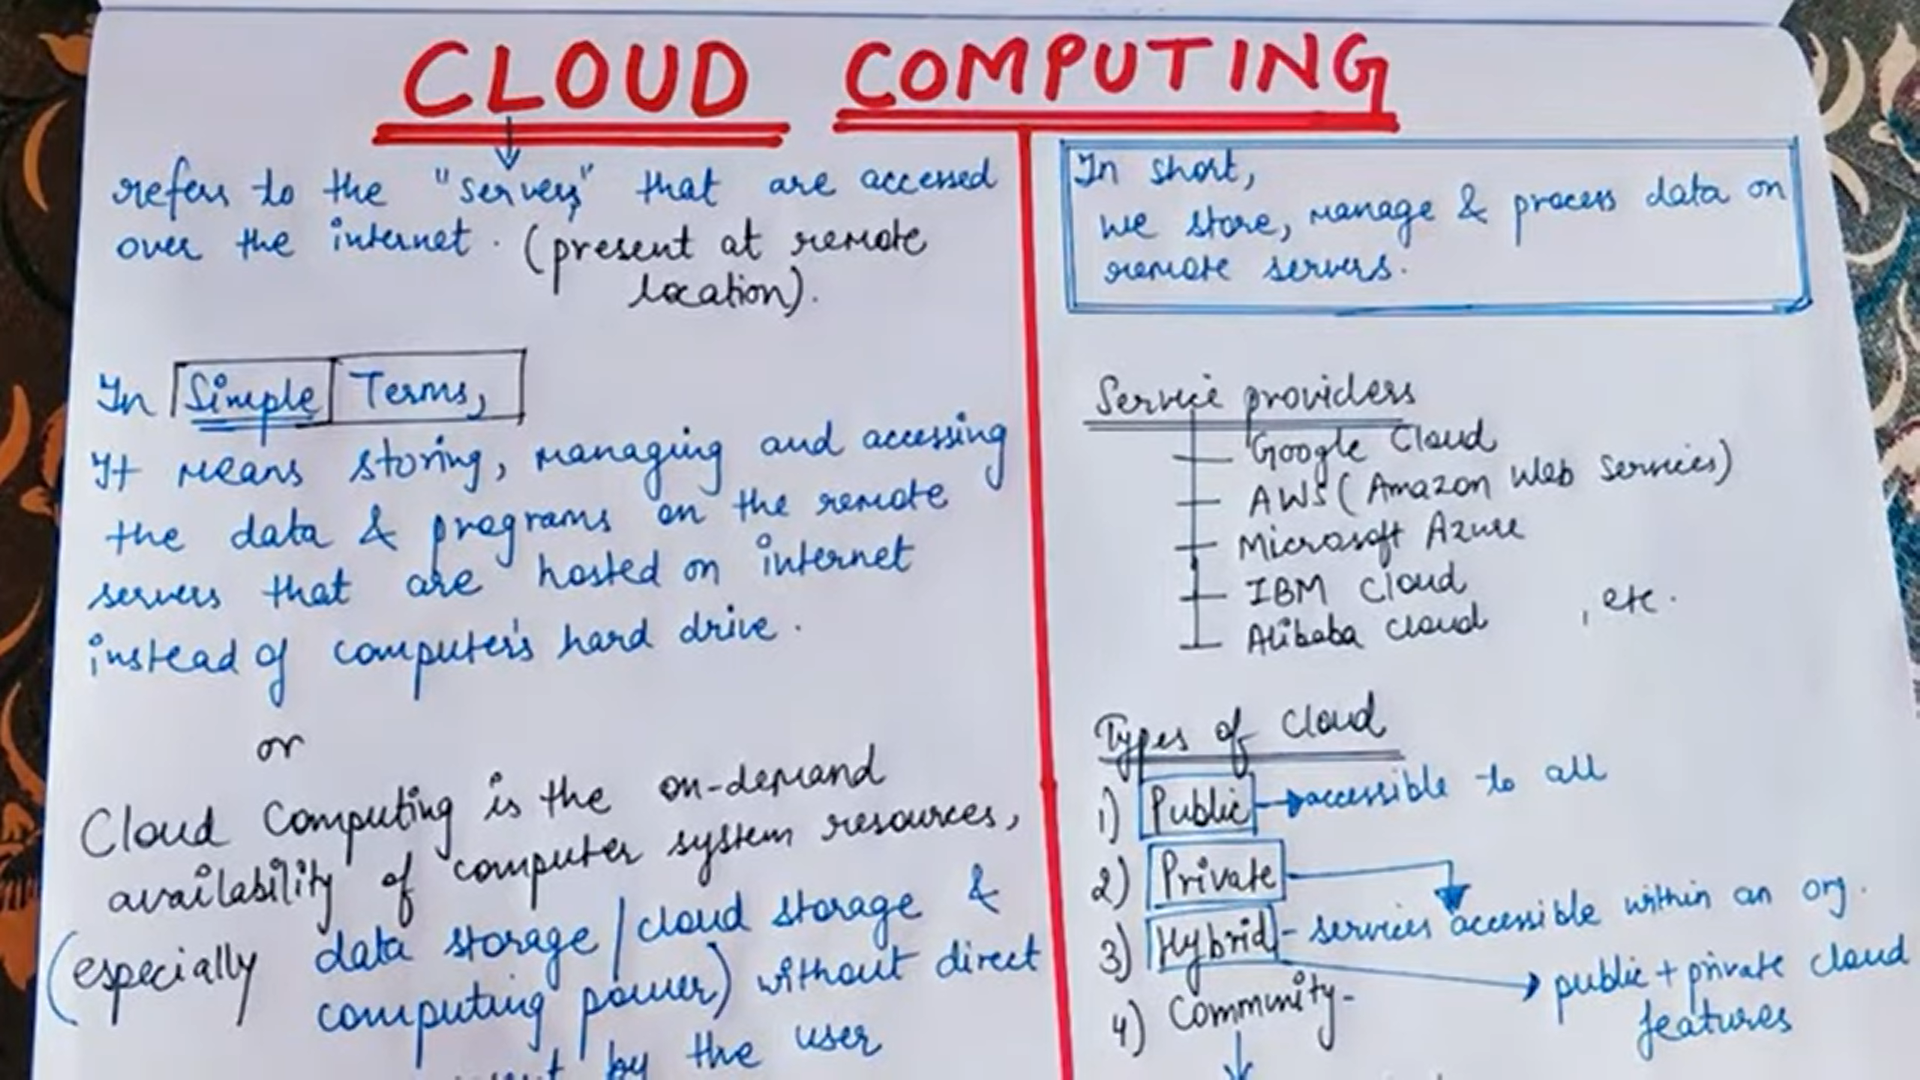 CLOUD COMPUTING
refers to the "servers" that are accessed
over the internet. (present at remote
location).
In Simple Terms,
It means storing, managing and accessing
the data & programs on the remote
servers that are hosted on internet
instead of computer's hard drive.
or
Cloud Computing is the on-demand
availability of computer system resources,
(especially data storage/cloud storage &
computing power) without direct
by the user
In short,
we store, manage & process data on
remote servers.
Service providers
Google Cloud
AWS (Amazon Web Services)
Microsoft Azure
IBM Cloud
Alibaba Cloud , etc.
Types of Cloud
1) Public → accessible to all
2) Private
3) Hybrid - services accessible within an org.
public + private cloud
features
4) Community -